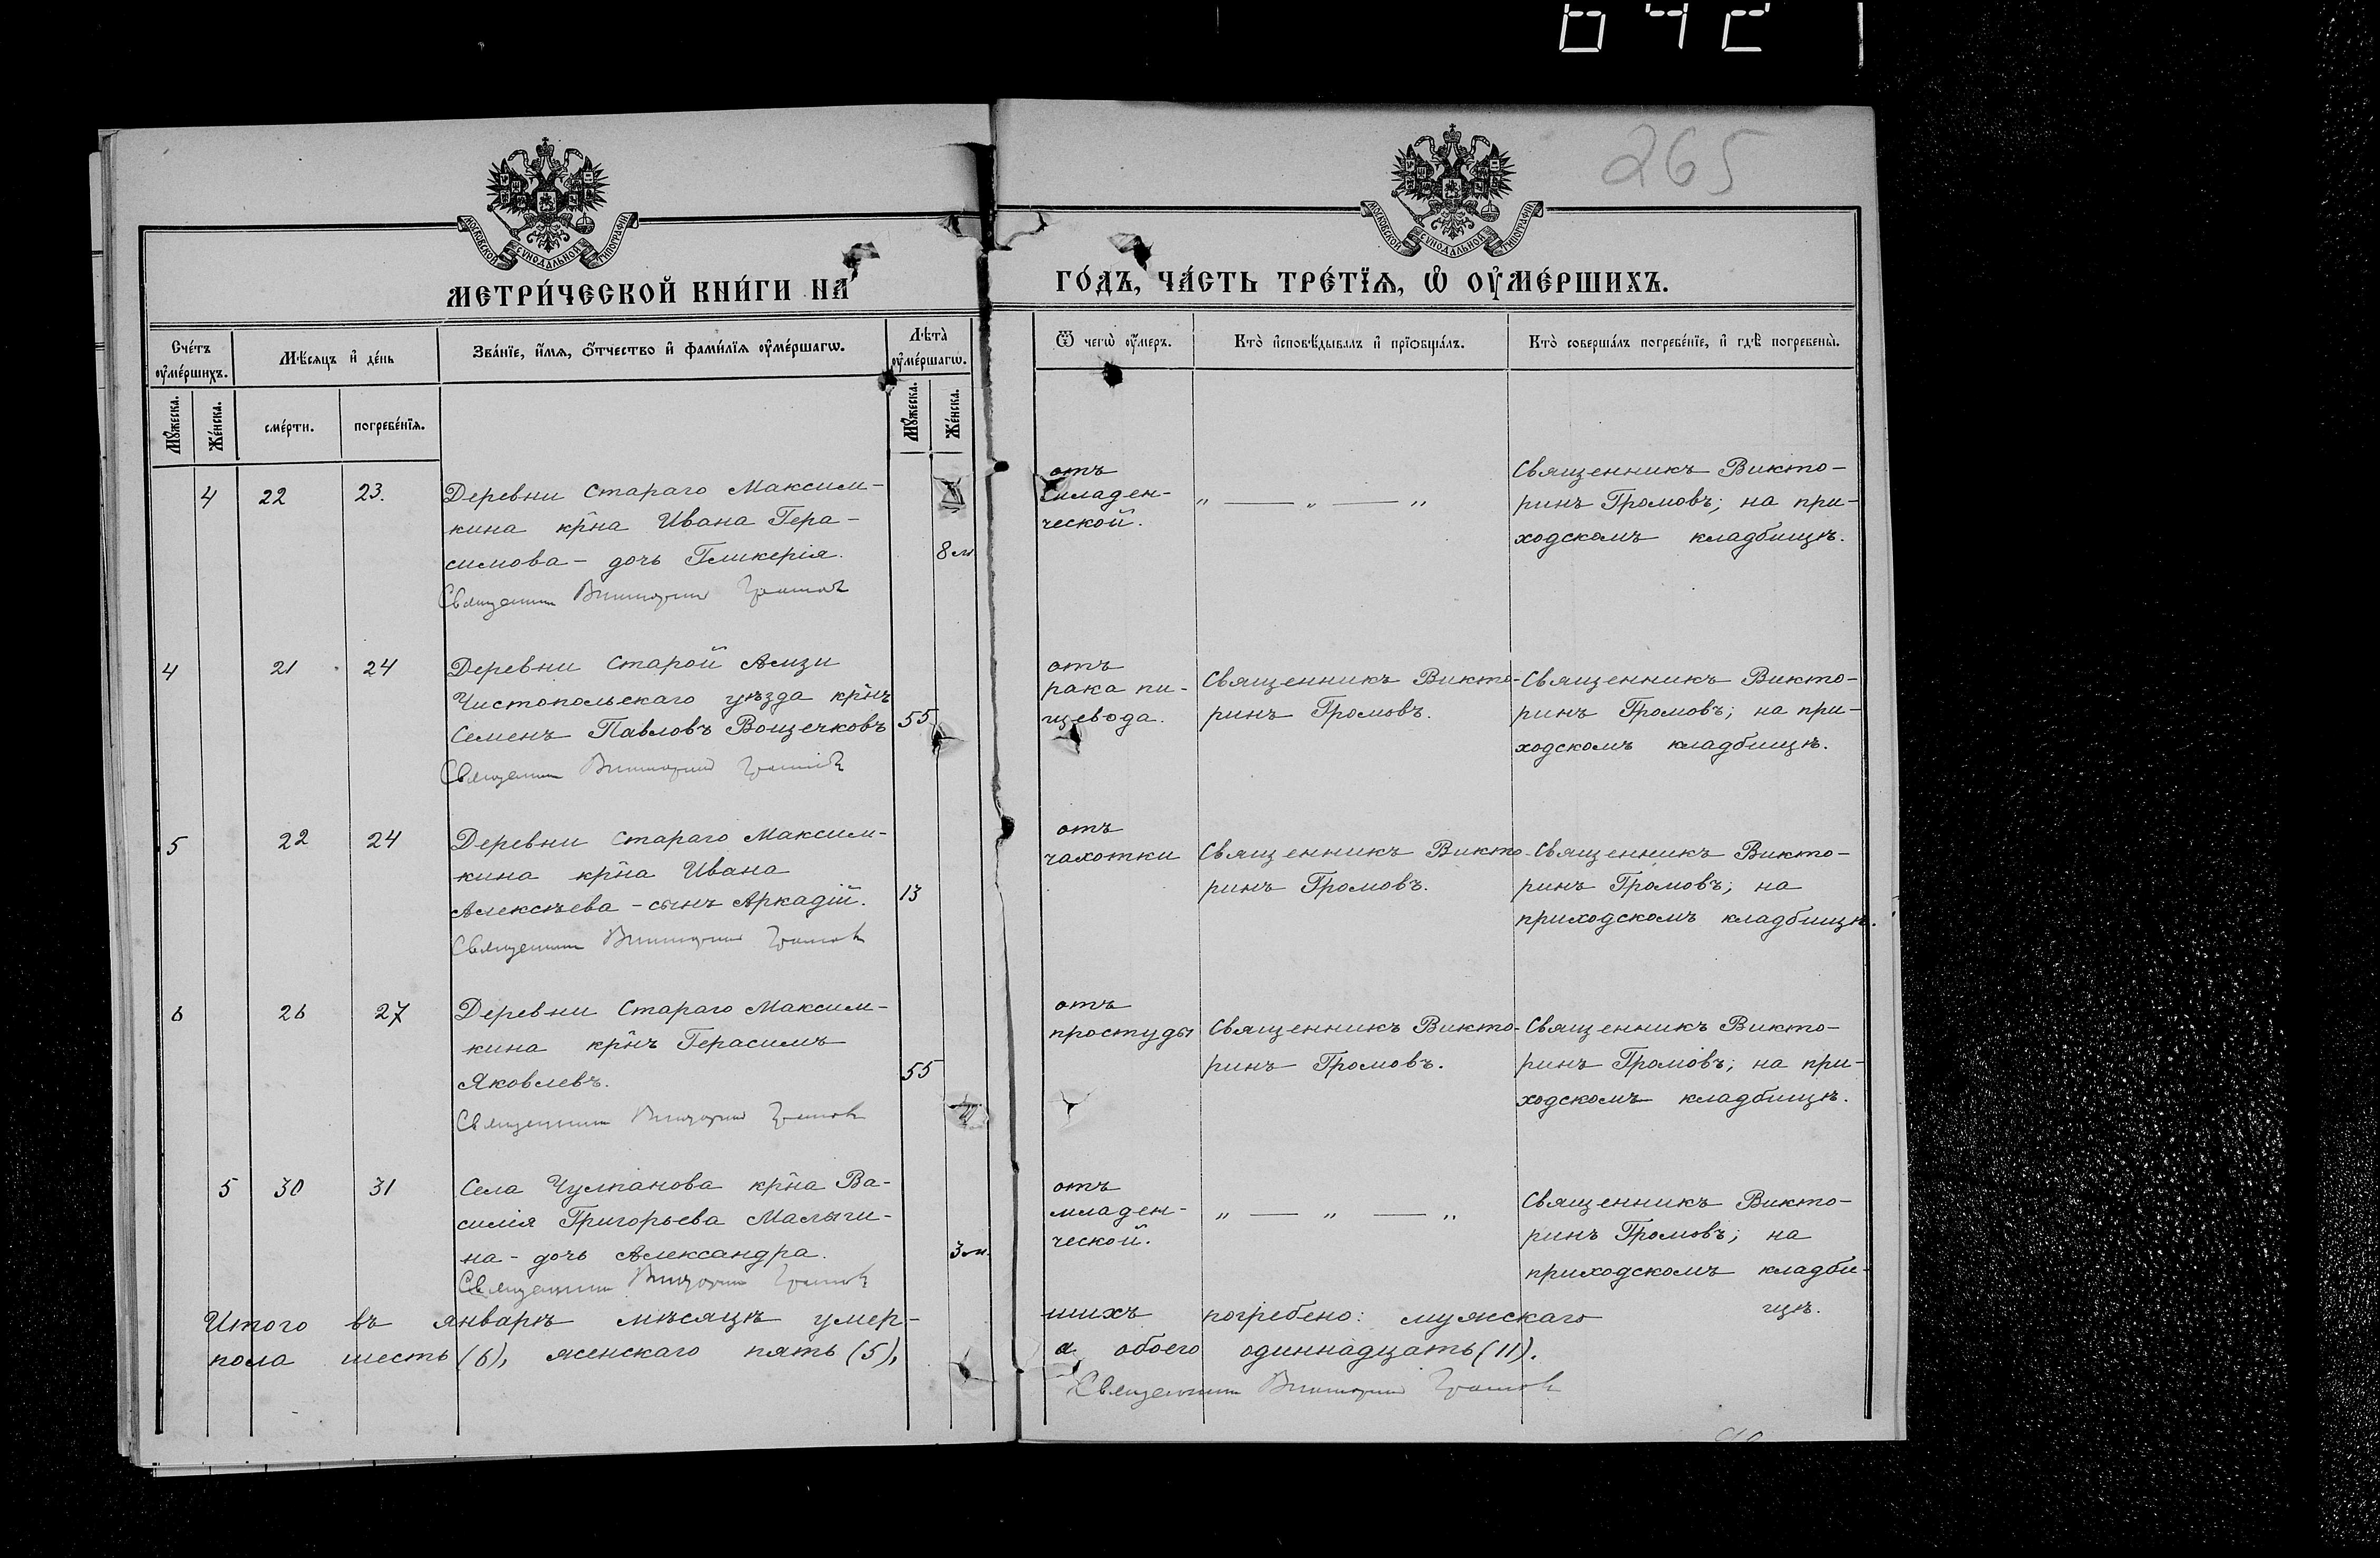 265
МОСКОВСКОЙ СѴНОДАЛЬНОЙ ТИПОГРАФІИ
МОСКОВСКОЙ СѴНОДАЛЬНОЙ ТИПОГРАФІИ
МЕТРИ́ЧЕСКОЙ КНИ́ГИ НА
ГО́ДЪ, ЧА́СТЬ ТРЕ́ТЇѦ, Ѡ҆ ОУ҆МЕ́РШИХЪ.
Сче́тъ оу҆ме́ршихъ.
Мѣ́сяцъ и҆ де́нь
Зва́нїе, и҆́мѧ, ѻ҆́тчество и҆ фами́лїѧ оу҆ме́ршагѡ.
Лѣта̀ оу҆ме́ршагѡ.
Ѿ чегѡ̀ оу҆́меръ.
Кто̀ и҆сповѣ́дывалъ и҆ прїѻбща́лъ.
Кто̀ соверша́лъ погребе́нїе, и҆ гдѣ̀ погребены̀.
Мꙋ́жеска.
Же́нска.
сме́рти.
погребе́нїѧ.
Мꙋ́жеска.
Же́нска.
4 22 23.
Деревни Стараго Максим-
кина кр̂на Ивана Гера-
симова - дочь Гликерія.
8 м
Священник Викторин Громов
отъ
младен-
ческой.
„ — „ — „
Священникъ Викто-
ринъ Громовъ; на при-
ходскомъ кладбищѣ.
4 21 24
Деревни Старой Амзи
Чистопольскаго уѣзда кр̂нъ
Семенъ Павловъ Вощечковъ
55
Священник Викторин Громов
отъ
рака пи-
щевода.
Священникъ Викто-
ринъ Громовъ.
Священникъ Викто-
ринъ Громовъ; на при-
ходскомъ кладбищѣ.
5 22 24
Деревни Стараго Максим-
кина кр̂на Ивана
Алексѣева - сынъ Аркадій.
13
Священник Викторин Громов
отъ
чахотки
Священникъ Викто-
ринъ Громовъ.
Священникъ Викто-
ринъ Громовъ; на
приходскомъ кладбищѣ.
6 26 27
Деревни Стараго Максим-
кина кр̂нъ Герасимъ
Яковлевъ.
55
Священник Викторин Громов
отъ
простуды
Священникъ Викто-
ринъ Громовъ.
Священникъ Викто-
ринъ Громовъ; на при-
ходскомъ кладбищѣ.
5 30 31
Села Чулпанова кр̂на Ва-
силія Григорьева Малыги-
на - дочь Александра.
3 м.
Священник Викторин Громов
отъ
младен-
ческой.
„ — „ — „
Священникъ Викто-
ринъ Громовъ; на
приходскомъ кладби-
щѣ.
Итого въ январѣ мѣсяцѣ умер-
шихъ погребено: мужскаго
пола шесть (6), женскаго пять (5),
а обоего одиннадцать (11).
Священник Викторин Громов